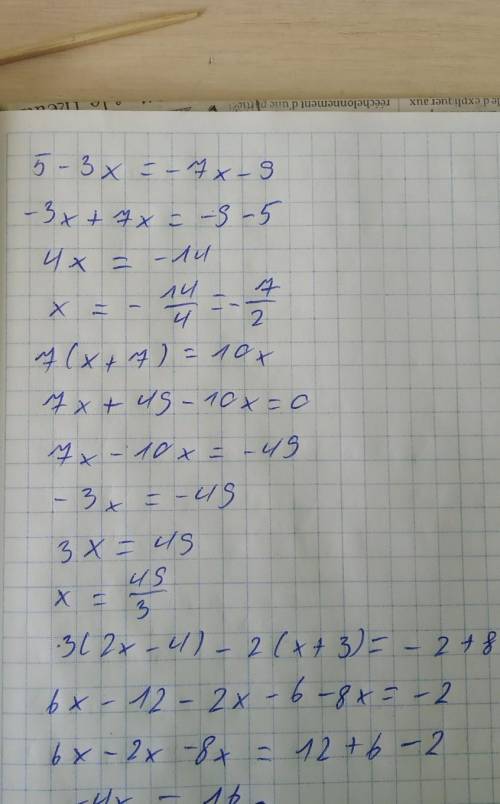 le d'expliquer aux
rééchelonnement d'une partie
5 - 3x = -7x - 9
-3x + 7x = -9 - 5
4x = -14
x = - 14/4 = - 7/2
7(x + 7) = 10x
7x + 49 - 10x = 0
7x - 10x = -49
-3x = -49
3x = 49
x = 49/3
3(2x - 4) - 2(x + 3) = -2 + 8
6x - 12 - 2x - 6 - 8x = -2
6x - 2x - 8x = 12 + 6 - 2
-4x = 16